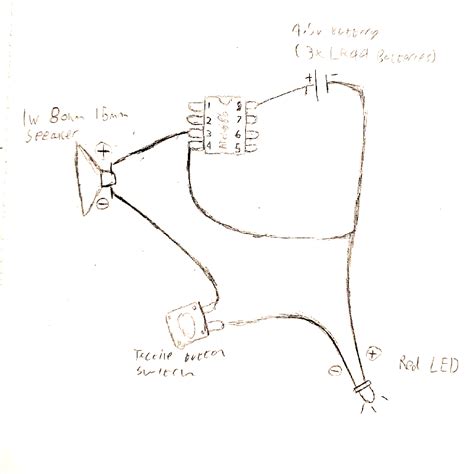 4.5v battery
(3x LR44 Batteries)
1w 8ohm 15mm
Speaker
+
-
1 8
2 7
3 6
4 5
+ -
Tactile button
switch
+
-
Red LED